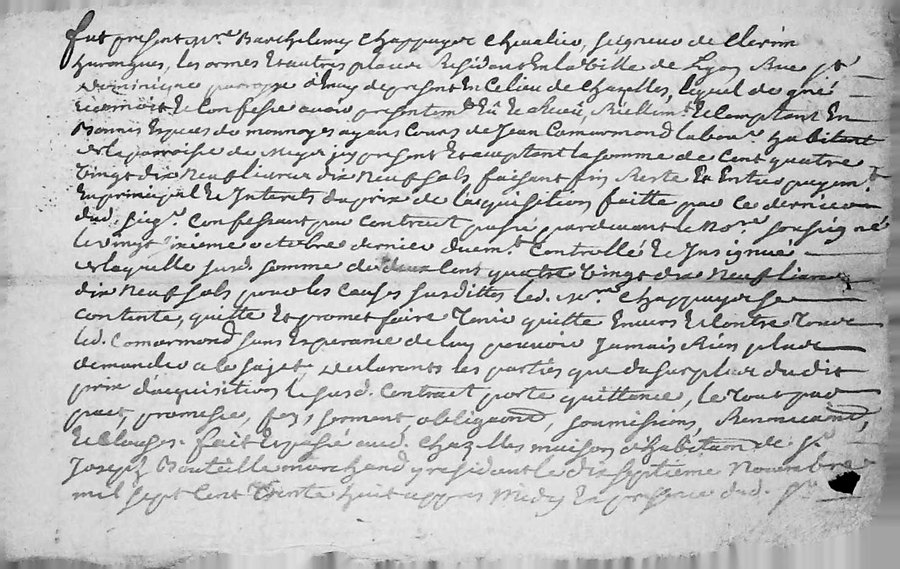 fut present M.re Barthelemy Chappuys Chevalier, seigneur de Clerim
les ormes Et autres places Residant En la Ville de Lyon Rue st
dominique parroisse d'Enay de present En Ce lieu de Chazelles, lequel de gré
reconnoit Et Confesse avoir presentem.t Eû Et Receu, Réellem.t Et Comptant En
Bonnes Especes de monnoyes ayans Cours de Jean Comarmond labour. habitant
de la parroisse de Meys icy present Et acceptant la somme de Cent quatre
Vingt dix Neuf livres dix Neuf sols faisant fin Reste Et Entier payem.t
En principal Et Interets du prix de l'acquisition faitte par Ce dernier
dud. seig.r Confessant par Contract passé pardevant le No.re soussigné
le vingt sixieme octobre dernier duem.t Controllé Et Insignué
de laquelle susd. somme de Cent quatre Vingt dix Neuf livres
dix Neuf sols pour les Causes susdittes led. Chappuys se
Contente, quitte Et promet faire Tenir quitte Envers Et Contre Tous
led. Comarmond sans Esperance de luy pouvoir Jamais Rien plus
demander a Ce sujet, declarants les parties que du surplus dudit
prix d'acquisition le susd. Contract porte quittance, le Tout par
pact, promesse, foy, serment, obligaons, soumissions, Renonciaons,
Et Clauses. fait Et passé aud. Chazelles maison d'habitaon de s.r
Joseph Bouteille marchand y residant le dix septieme Novembre
mil sept Cent Trente huit appres Midy En presence dud. s.r